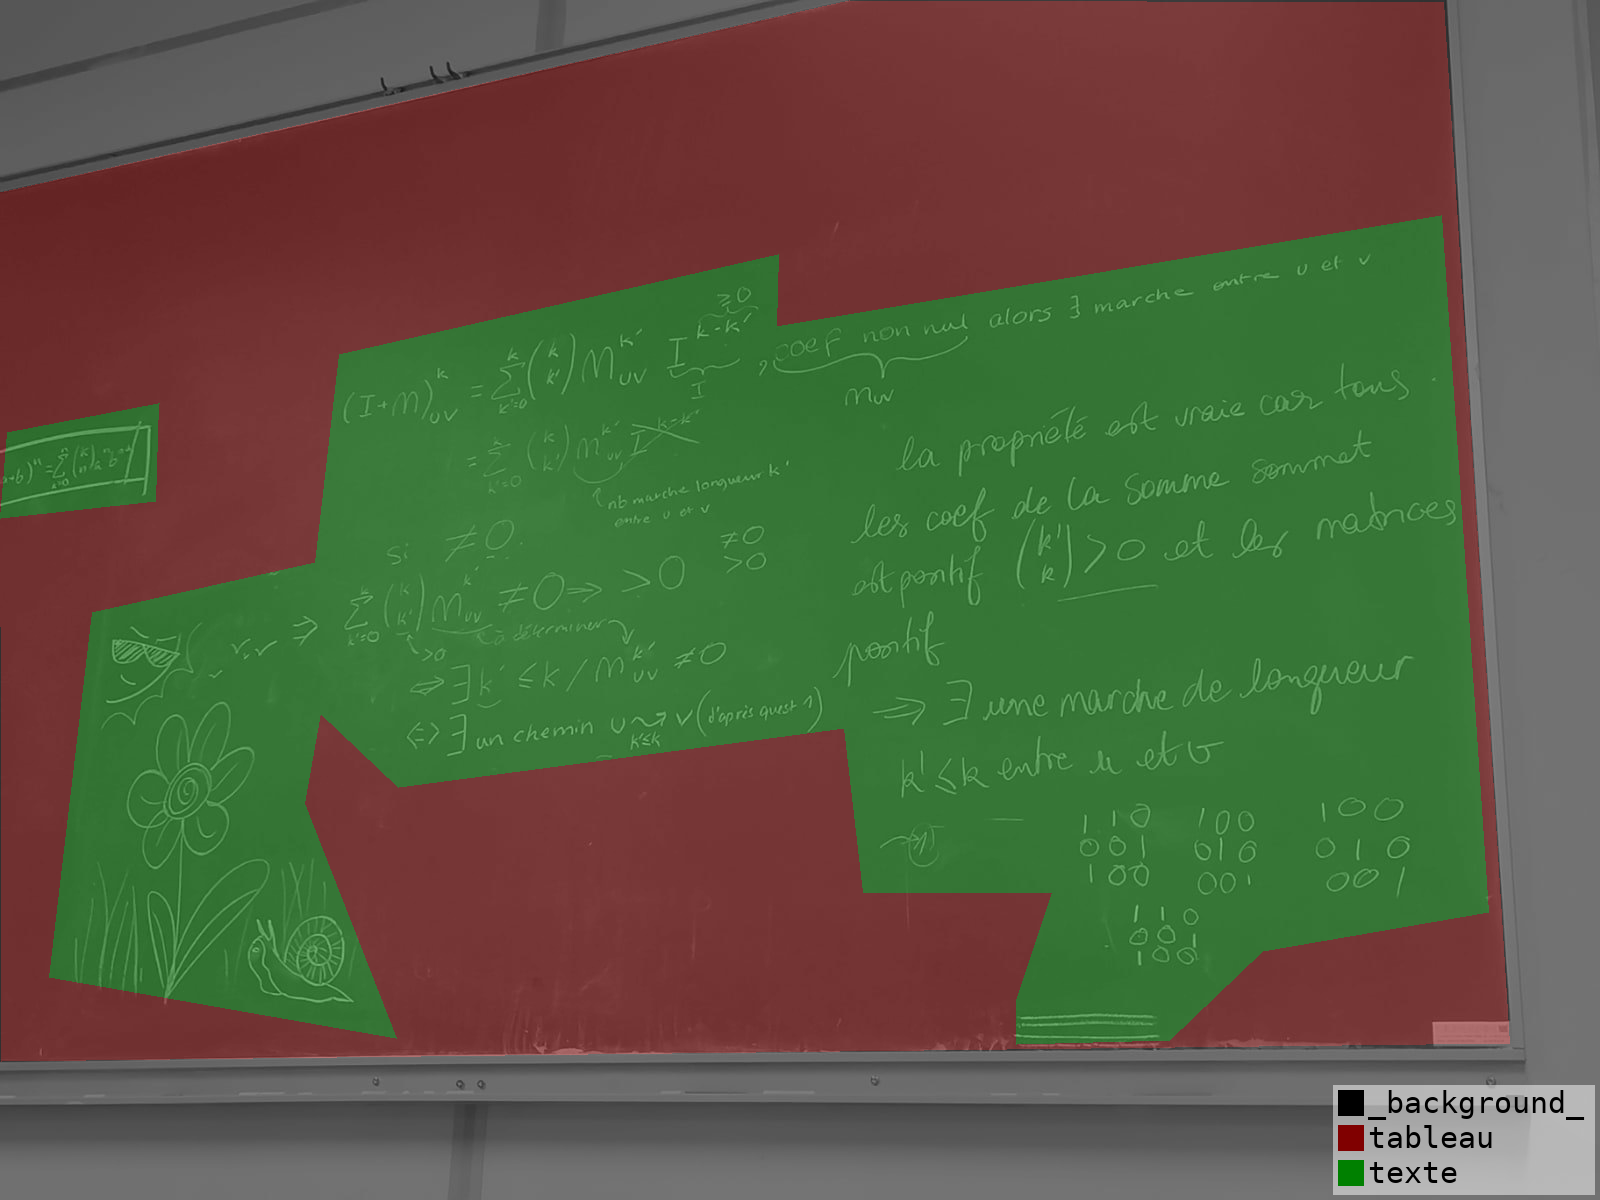 (a+b)^n = ∑_{k=0}^n (k n) a^n b^{n-k}
≥0
(I+M)^k_{uv} = ∑_{k'=0}^k (k k') M_{uv}^{k'} I^{k-k'} , coef non nul alors ∃ marche entre u et v
I
m_{uv}
= ∑_{k'=0}^k (k k') M_{uv}^{k'} I^{k-k'}
nb marche longueur k'
entre u et v
si ≠0.
⇒ ∑_{k'=0}^k (k k') M_{uv}^{k'} ≠0 ⇒ >0
≠0
>0
>0
à déterminer
⇔ ∃ k' ≤ k / M_{uv}^{k'} ≠0
⇔ ∃ un chemin u ⇝ v (d'après quest 1)
k'≤k
la propriété est vraie car tous
les coef de la somme sommet
est positif (k' k) > 0 et les matrices
positif
⇒ ∃ une marche de longueur
k' ≤ k entre u et v
1 1 0 1 0 0 1 0 0
0 0 1 0 1 0 0 1 0
1 0 0 0 0 1 0 0 1
1 1 0
0 0 1
1 0 0
_background_
tableau
texte